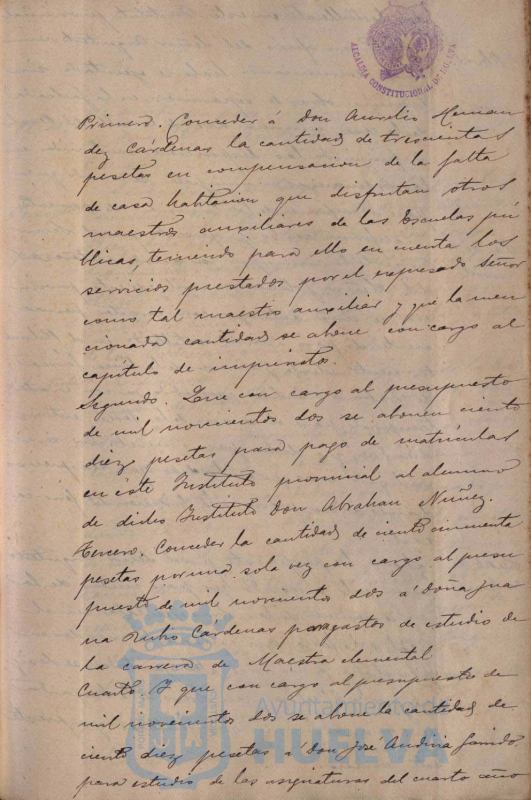 ALCALDIA CONSTITUCIONAL DE HUELVA
Primero. Conceder á Don Aurelio Hernan
dez Cárdenas la cantidad de trescientas
pesetas en compensacion de la falta
de casa habitacion que disfrutan otros
maestros auxiliares de las Escuelas pú
blicas, teniendo para ello en cuenta los
servicios prestados por el expresado señor
como tal maestro auxiliar y que la men
cionada cantidad se abone con cargo al
capítulo de imprevistos.
Segundo. Que con cargo al presupuesto
de mil novecientos dos se abonen ciento
diez pesetas para pago de matrículas
en éste Instituto provincial al alumno
de dicho Instituto Don Abrahan Núñez.
Tercero. Conceder la cantidad de ciento cincuenta
pesetas por una sola vez con cargo al presu
puesto de mil novecientos dos á Doña Jua
na Cárdenas para gastos de estudio de
la carrera de Maestra elemental
Cuarto. Y que con cargo al presupuesto de
mil novecientos dos se abone la cantidad de
ciento diez pesetas á Don José Garrido
para estudio de las asignaturas del cuarto año
Ayuntamiento de
HUELVA